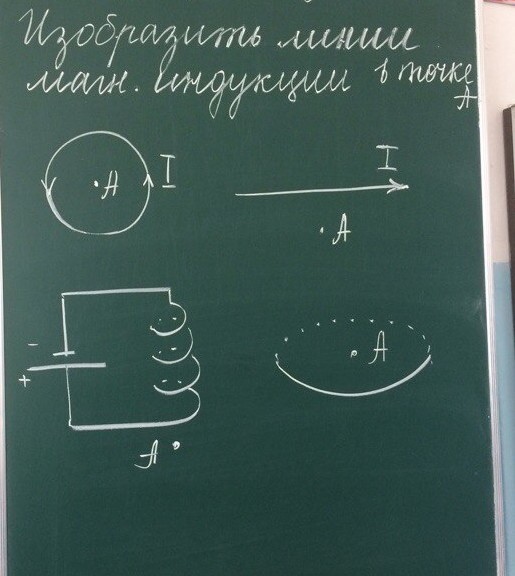 Изобразить линии
магн. индукции в точке
А
I
I
А
А
-
+
А
А